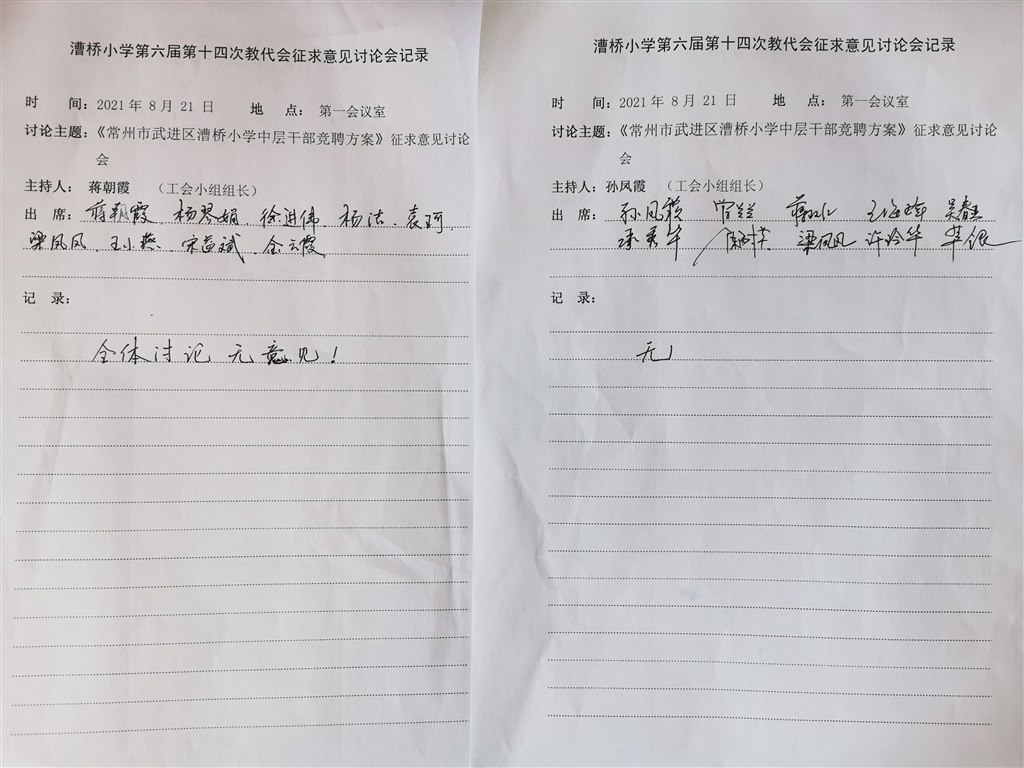 漕桥小学第六届第十四次教代会征求意见讨论会记录
时 间：2021 年 8 月 21 日 地 点： 第一会议室
讨论主题：《常州市武进区漕桥小学中层干部竞聘方案》征求意见讨论
会
主持人： 蒋朝霞 （工会小组组长）
出 席： 蒋朝霞 杨琴娟 徐进伟 杨洁 袁珂
梁凤凤 王小燕 宋益斌 金云霞
记 录：
全体讨论 无意见！
漕桥小学第六届第十四次教代会征求意见讨论会记录
时 间：2021 年 8 月 21 日 地 点： 第一会议室
讨论主题：《常州市武进区漕桥小学中层干部竞聘方案》征求意见讨论
会
主持人：孙凤霞 （工会小组组长）
出 席： 孙凤霞
梁凤凤 许玲华
记 录：
无